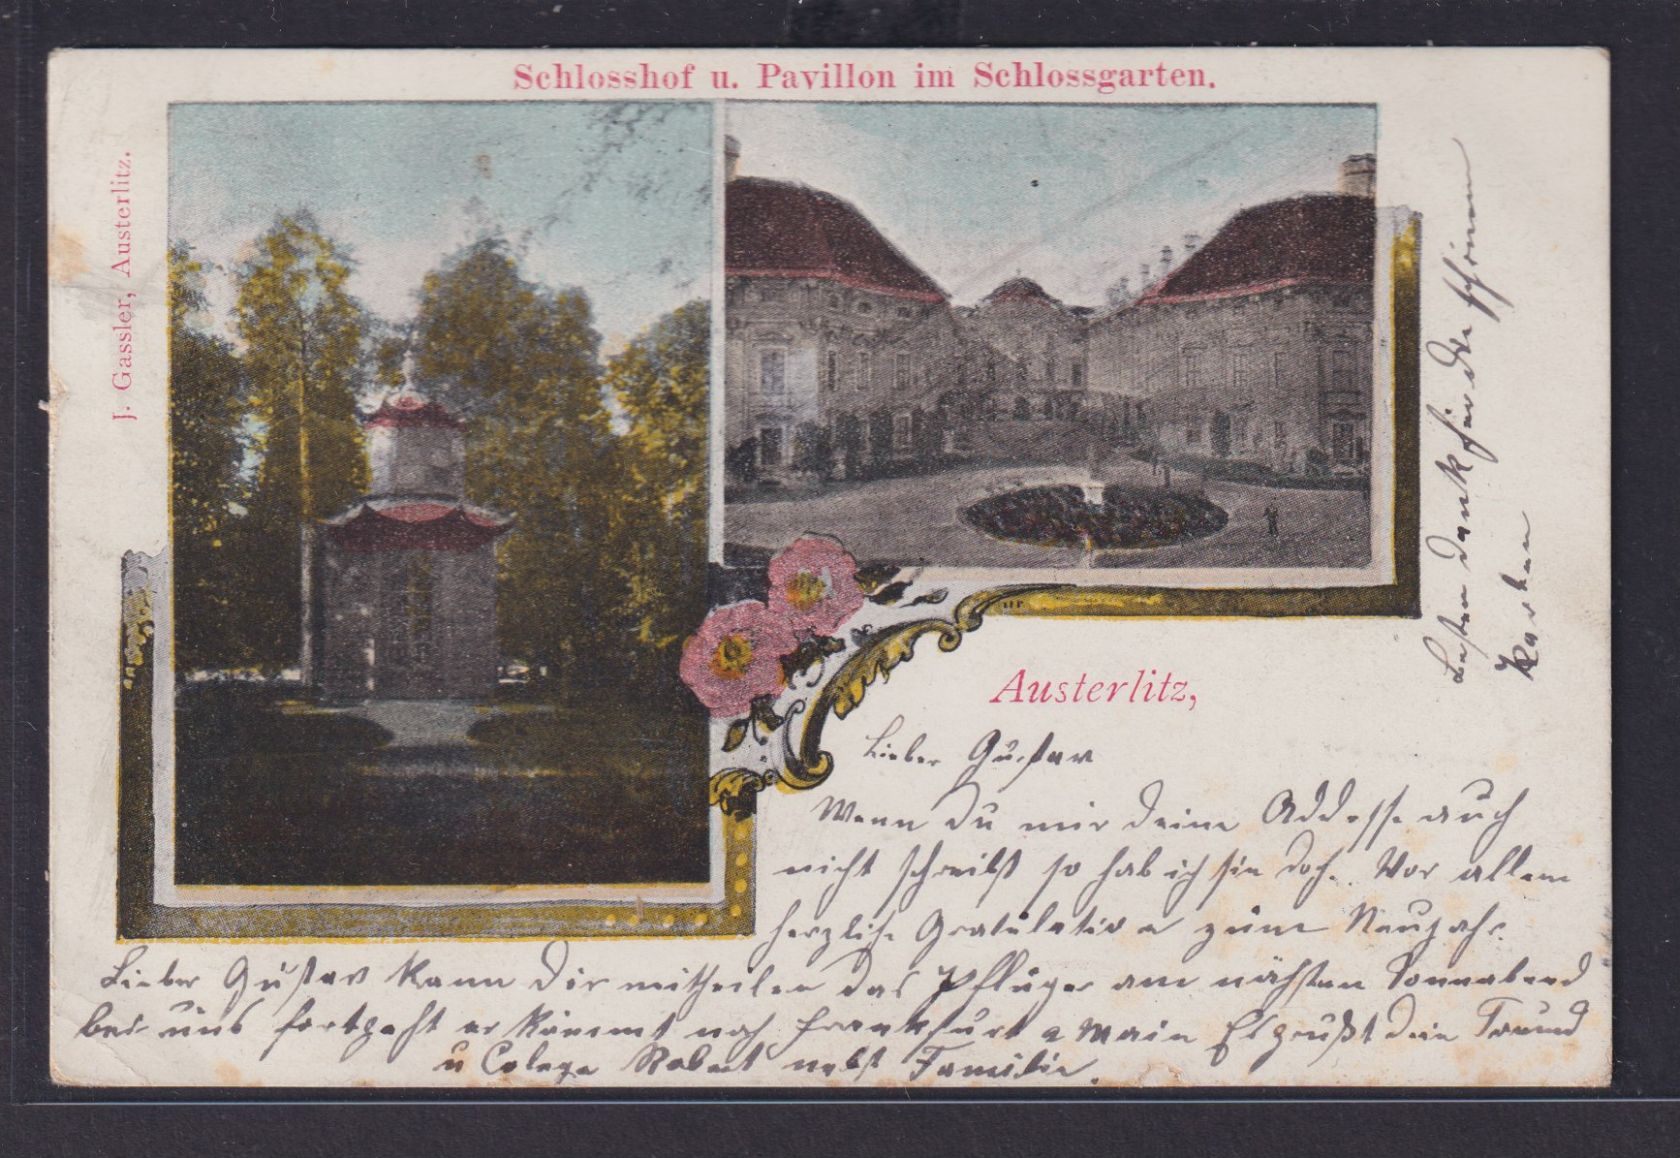 Schlosshof u. Pavillon im Schlossgarten.
J. Gassler, Austerlitz.
Austerlitz,
Lieber Gustav
Wenn Du mir deine Addesse auch
nicht schreibst so hab ich sie doch. Vor allem
herzliche Gratulation zum Neujahr.
Lieber Gustav kann Dir mittheilen das Pflüger am nächsten Sonnabend
bei uns fortgeht er kommt nach Frankfurt a Main Es grüßt dein Freund
u Colege Robert nebst Familie.
Besten dank für die schönen
Karten